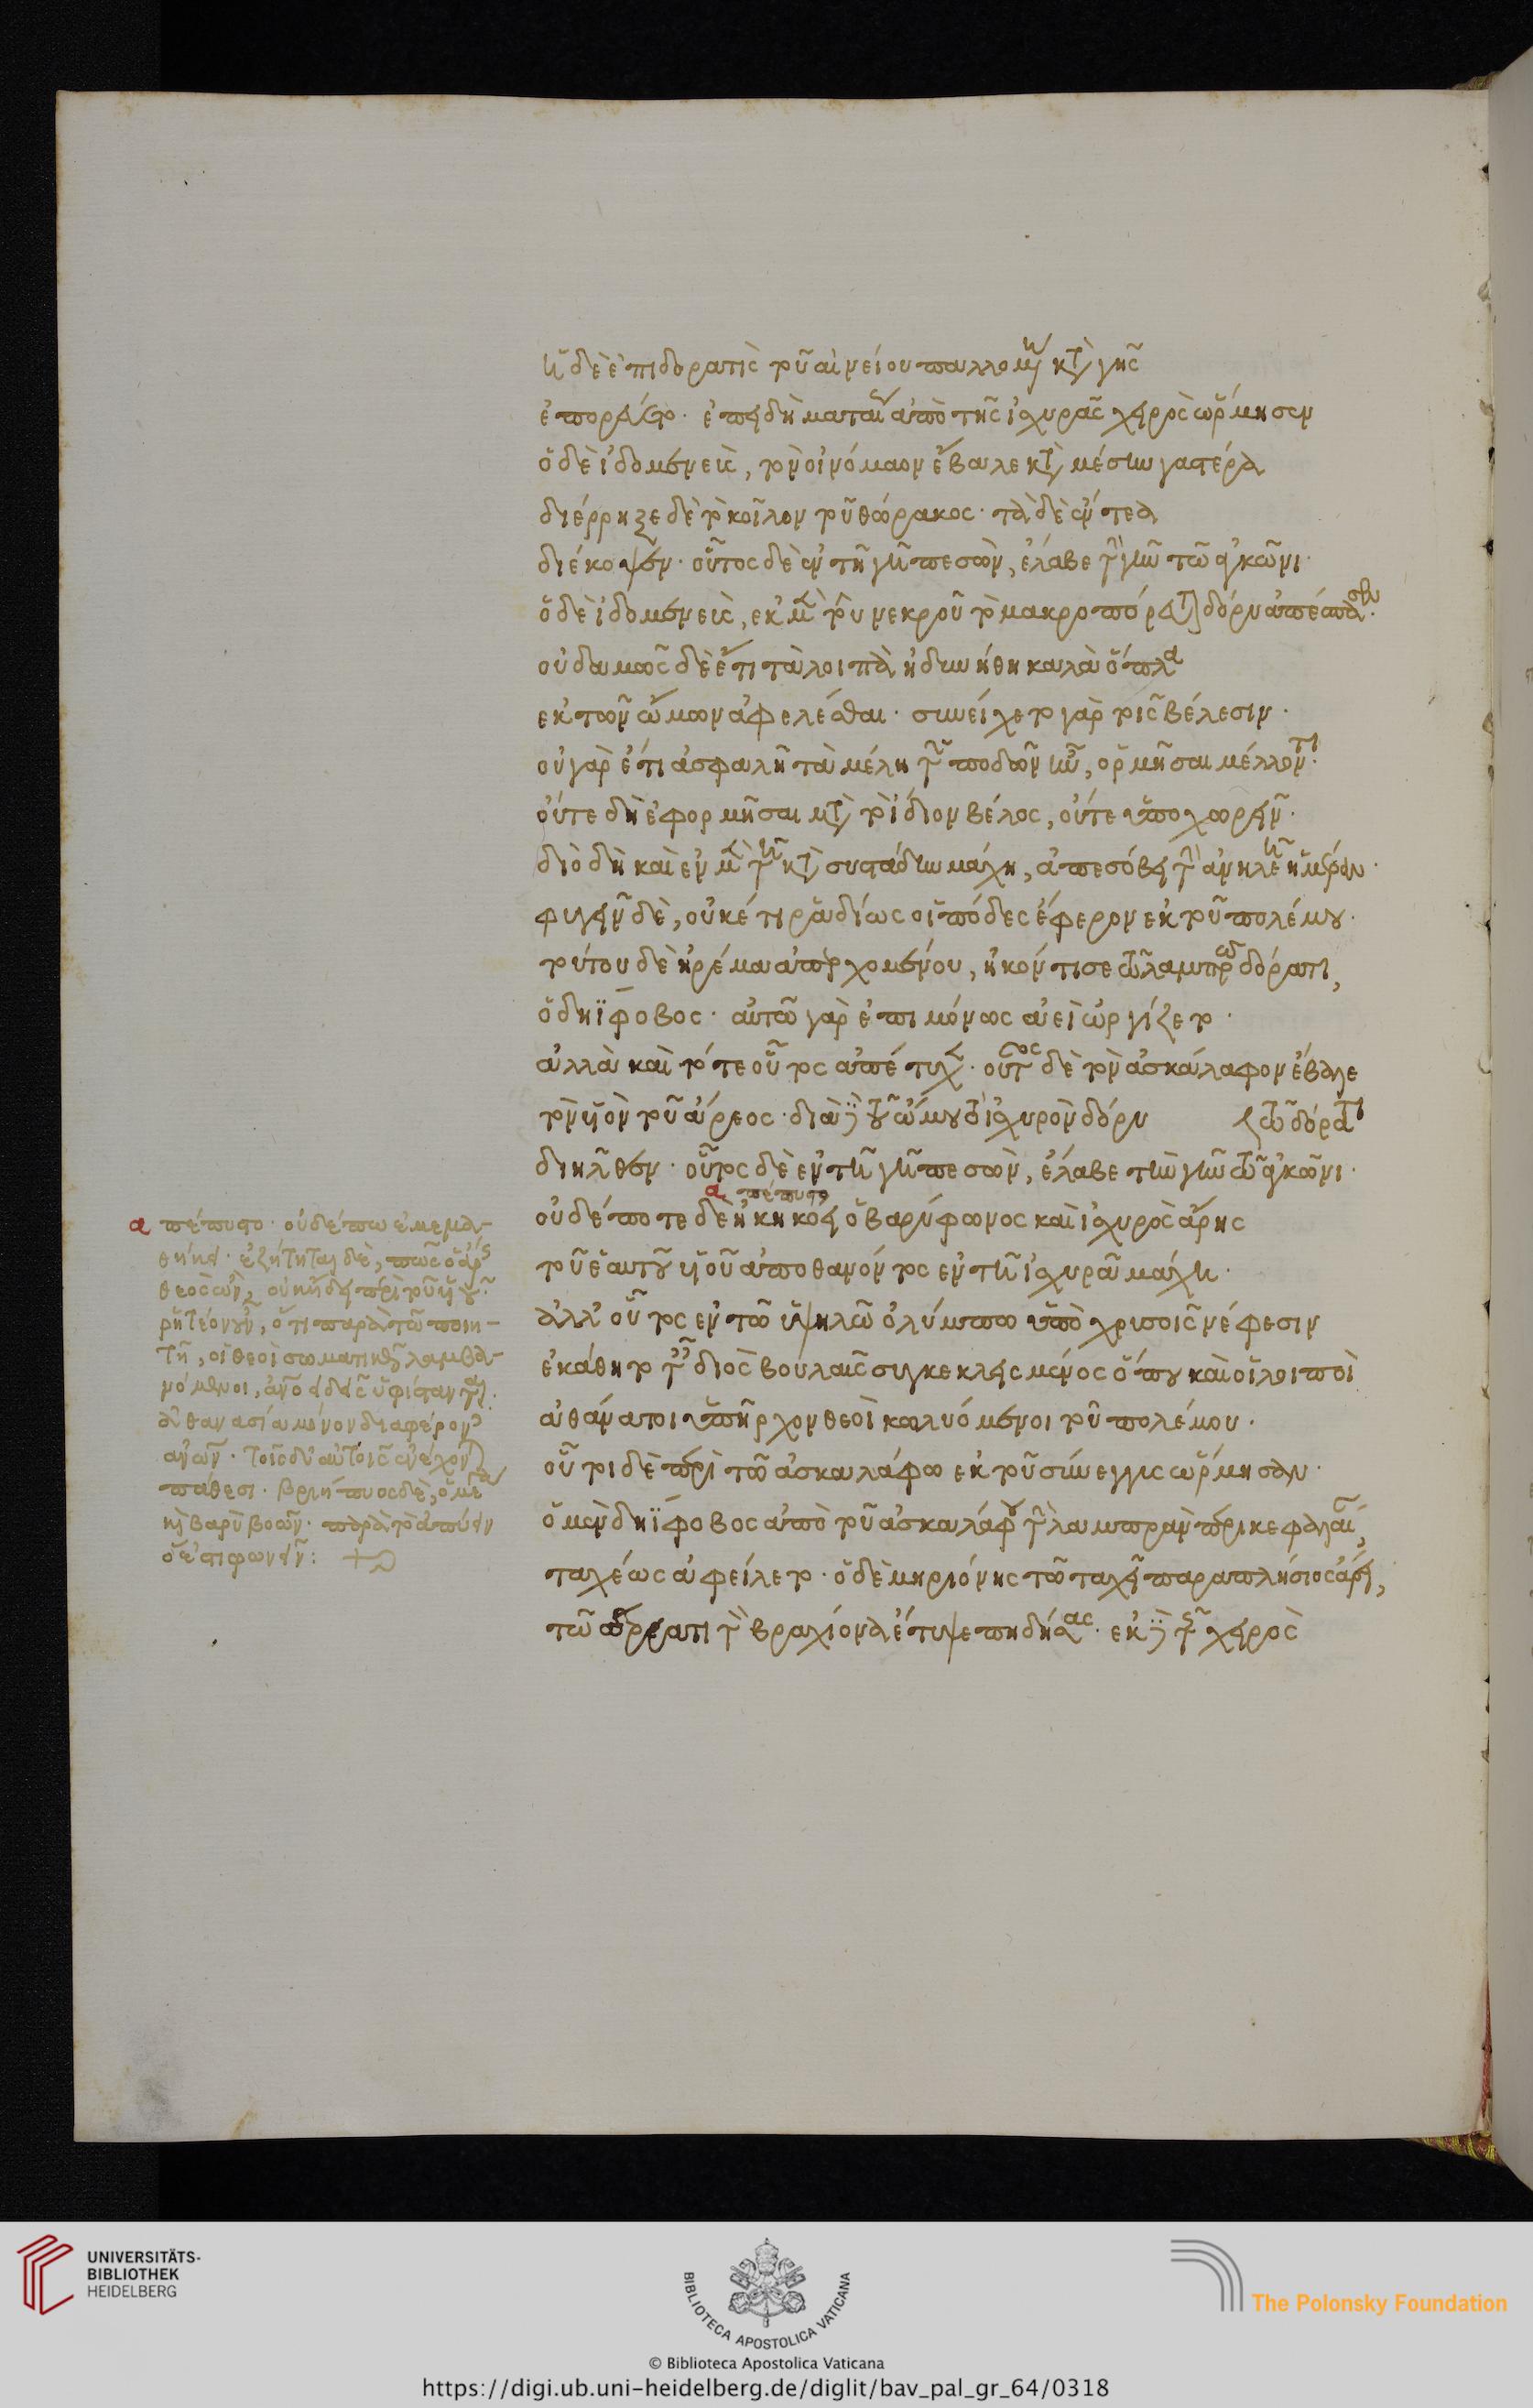 ἡ δὲ ἐπιδορατὶς τοῦ αἰνείου παλλομένη κατὰ γῆς
ἐπορεύετο· ἐπειδὴ ματαίως ἀπὸ τῆς ἰσχυρᾶς χειρὸς ὥρμησεν
ὁ δὲ ἰδομενεὺς, τὸν οἰνόμαον ἔβαλε κατὰ μέσην γαστέρα
διέρρηξε δὲ τὸ κοῖλον τοῦ θώρακος· τὰ δὲ ἔντερα
διέκοψεν· οὗτος δὲ ἐν τῆ γῆ πεσὼν, ἔλαβε τὴν γῆν τῶ ἀγκῶνι·
ὁ δὲ ἰδομενεὺς, ἐκ μὲν τοῦ νεκροῦ τὸ μακροπόρευτον δόρυ ἀπέσπασεν·
οὐδαμῶς δὲ ἔτι τὰ λοιπὰ ἠδυνήθη καλὰ ὅπλα
ἐκ τῶν ὤμων ἀφελέσθαι· συνείχετο γὰρ τοῖς βέλεσιν·
οὐ γὰρ ἔτι ἀσφαλῆ τὰ μέλη τῶν ποδῶν ἦν, ὁρμῆσαι μέλλοντι·
οὔτε δὴ ἐφορμῆσαι μετὰ τὸ ἴδιον βέλος, οὔτε ὑποχωρεῖν·
διὸ δὴ καὶ ἐν μὲν τῆ κατὰ συστάδην μάχη, ἀπεσόβει τὴν ἀνηλεῆ ἡμέραν·
φυγεῖν δὲ, οὐκέτι ῥαδίως οἱ πόδες ἔφερον ἐκ τοῦ πολέμου·
τούτου δὲ ἠρέμα ἀπερχομένου, ἠκόντισε τῶ λαμπρῶ δόρατι,
ὁ δηΐφοβος· αὐτῶ γὰρ ἐπιμόνως ἀεὶ ὠργίζετο·
ἀλλὰ καὶ τότε οὗτος ἀπέτυχε· οὗτος δὲ τὸν ἀσκάλαφον ἔβαλε
τὸν υἱὸν τοῦ ἄρεος· διὰ δὲ τοῦ ὤμου τὸ ἰσχυρὸν δόρυ τῶ δόρατι
διῆλθεν· οὗτος δὲ ἐν τῆ γῆ πεσὼν, ἔλαβε τὴν γῆν τῶ ἀγκῶνι·
α πέπυστο
οὐδέποτε δὲ ἠκηκόει ὁ βαρύφωνος καὶ ἰσχυρὸς ἄρης
τοῦ ἑαυτοῦ υἱοῦ ἀποθανόντος ἐν τῆ ἰσχυρᾶ μάχη·
ἀλλ' οὗτος ἐν τῶ ὑψηλῶ ὀλύμπω ὑπὸ χρυσοῖς νέφεσιν
ἐκάθητο ταῖς διὸς βουλαῖς συγκεκλεισμένος ὅπου καὶ οἱ λοιποὶ
ἀθάνατοι ὑπῆρχον θεοὶ κωλυόμενοι τοῦ πολέμου·
οὗτοι δὲ περὶ τῶ ἀσκαλάφω ἐκ τοῦ σύνεγγυς ὥρμησαν·
ὁ μὲν δηΐφοβος ἀπὸ τοῦ ἀσκαλάφου τὴν λαμπρὰν περικεφαλαίαν,
ταχέως ἀφείλετο· ὁ δὲ μηριόνης τῶ ταχεῖ παραπλήσιος ἄρει,
τῶ δόρατι τὸν βραχίονα ἔτυψε πηδήσας· ἐκ δὲ τῆς χειρὸς
α πέπυστο· οὐδέπω ἐμεμα-
θήκει· ἐζήτηται δὲ, πῶς ὁ ἄρης
θεὸς ὢν, οὐκ ἤδει περὶ τοῦ υἱοῦ·
ῥητέον οὖν, ὅτι παρὰ τῶ ποιη-
τῆ, οἱ θεοὶ σωματικῶς λαμβα-
νόμενοι, ἀνθρωποειδεῖς ὑφίστανται·
ἀθανασία μόνον διαφέροντες
ἀνθρώπων· τοῖς δ' αὐτοῖς ἐνέχονται
πάθεσι· βριήπυος δὲ, ὁ μεγάλα
καὶ βαρὺ βοῶν· παρὰ τὸ ἀπύειν
ὅ ἐστι φωνεῖν:
UNIVERSITÄTS-
BIBLIOTHEK
HEIDELBERG
BIBLIOTECA APOSTOLICA VATICANA
The Polonsky Foundation
© Biblioteca Apostolica Vaticana
https://digi.ub.uni-heidelberg.de/diglit/bav_pal_gr_64/0318